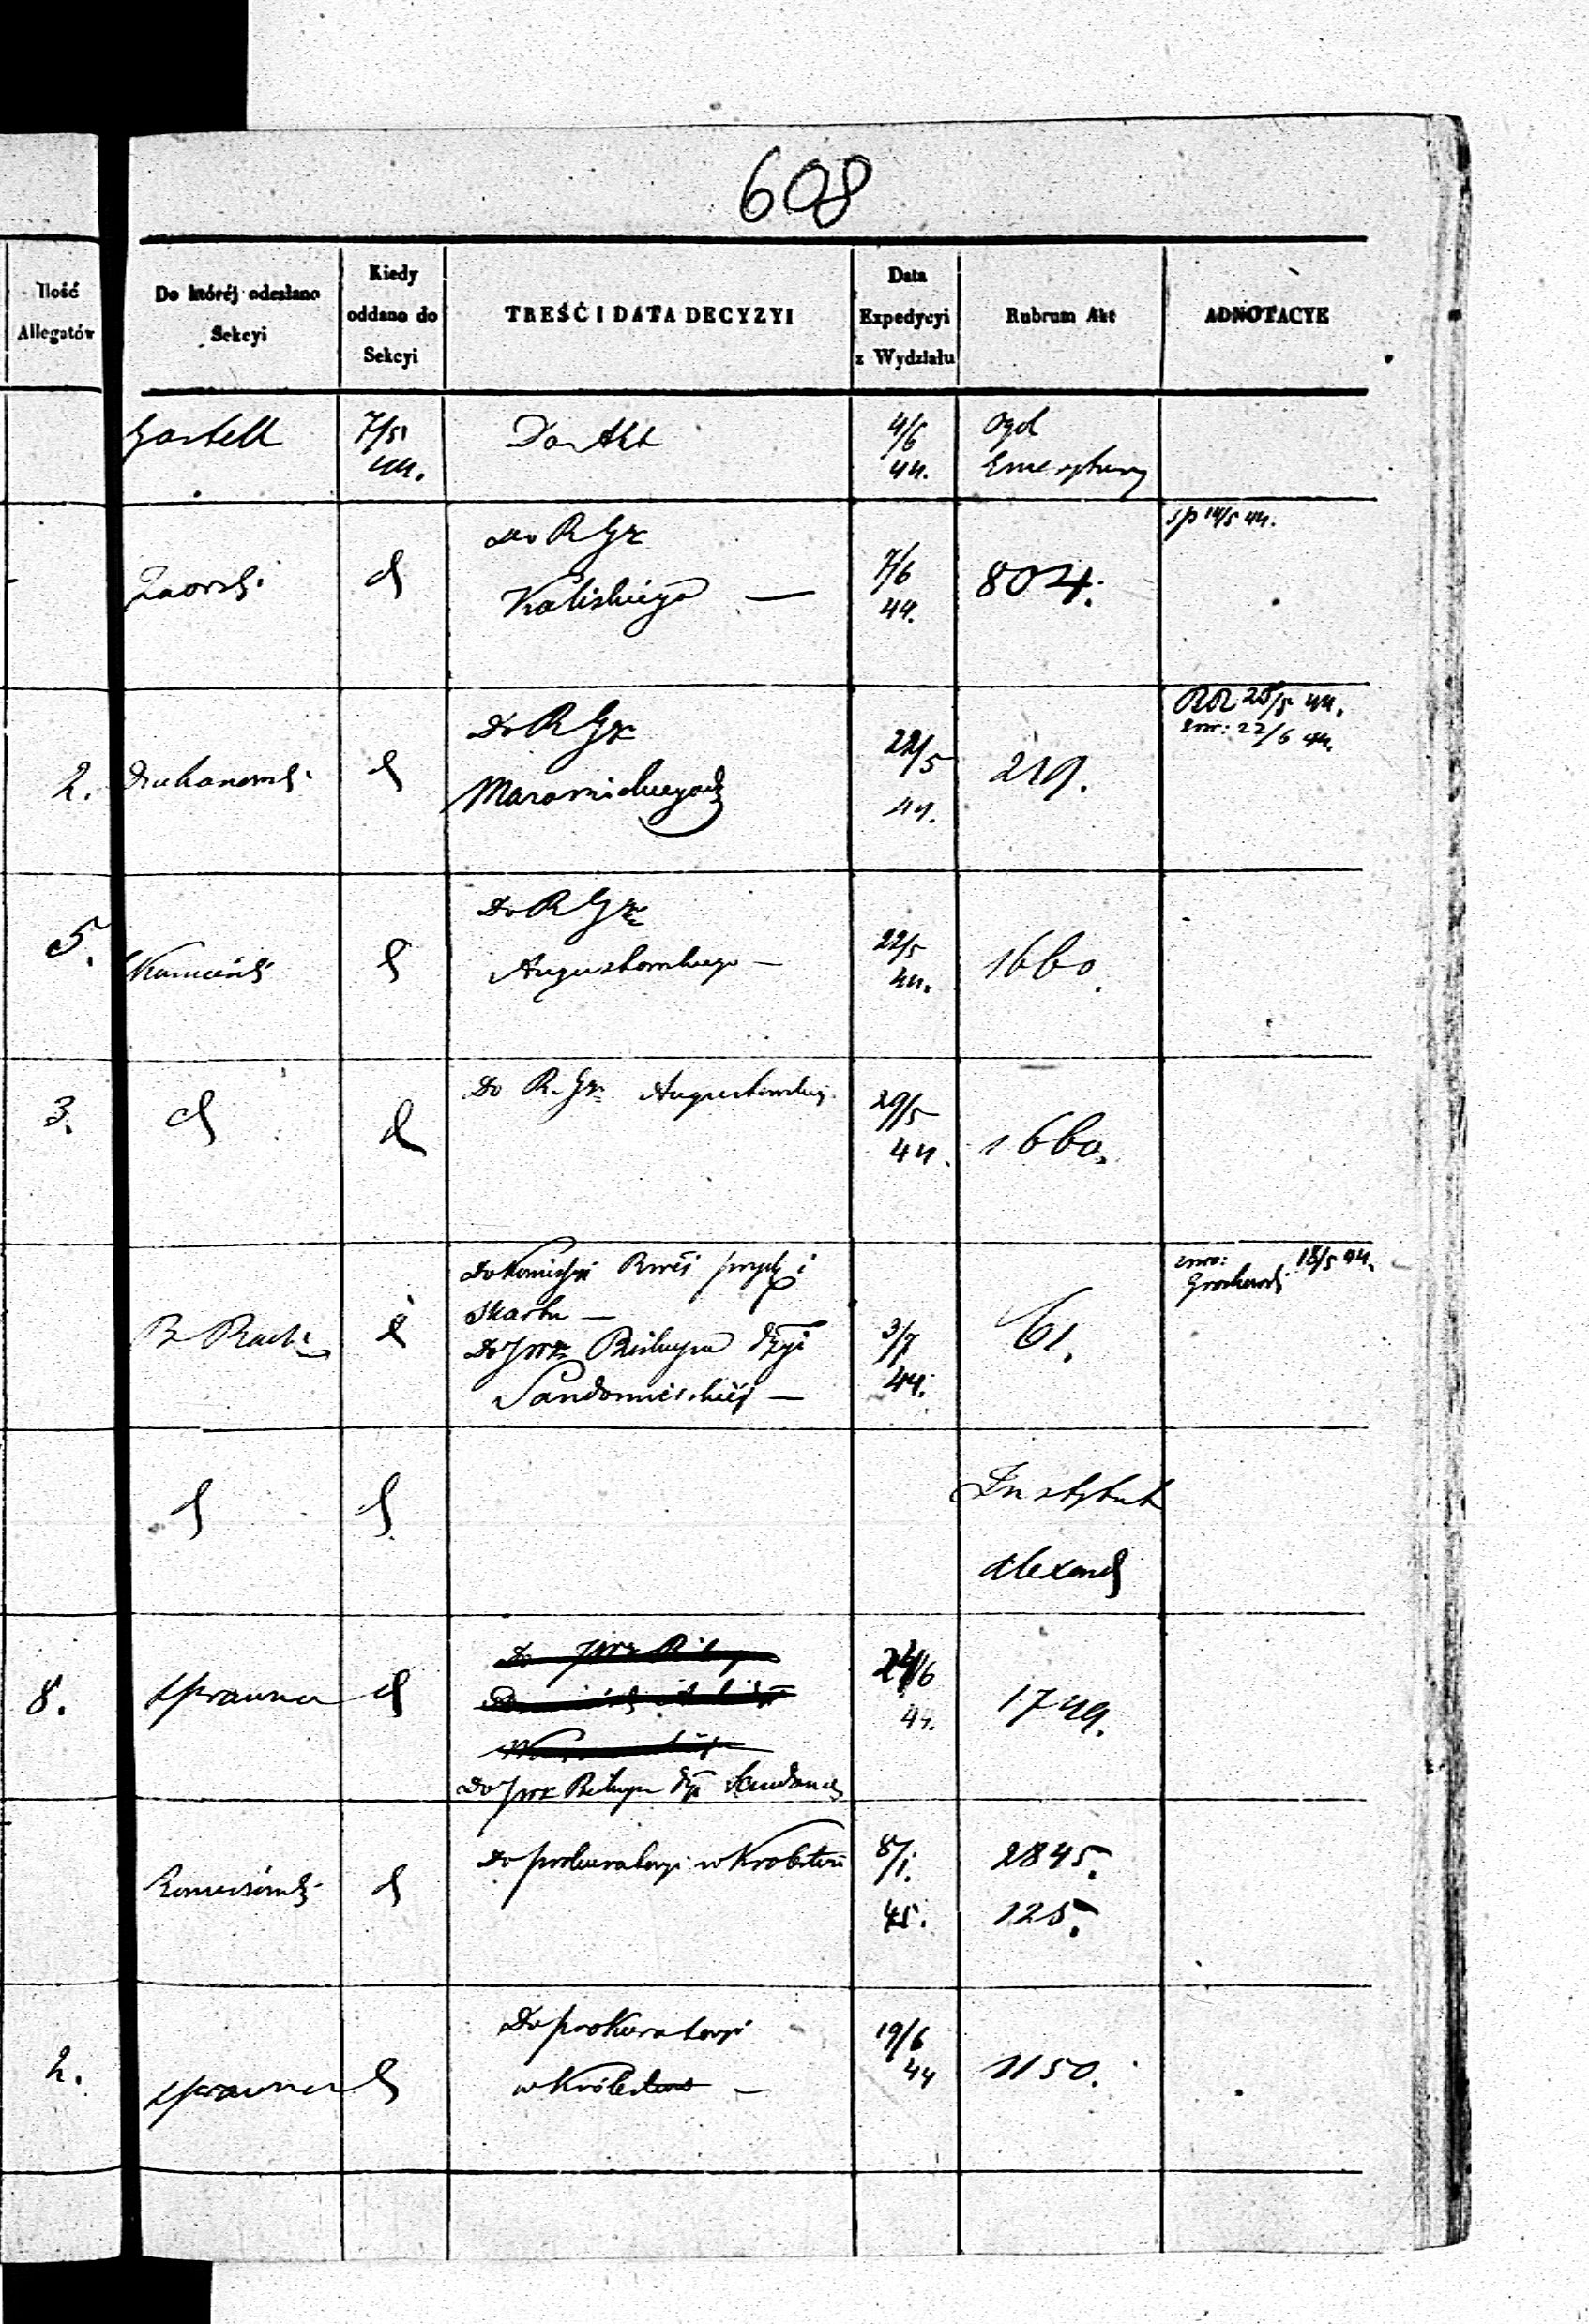 608
Ilość
Allegatów
Do któréj odesłano
Sekcyi
Kiedy
oddano do
Sekcyi
TREŚĆ I DATA DECYZYI
Data
Expedycyi
z Wydziału
Rubrum Akt
ADNOTACYE
7/5
44.
Do Akt
4/6
44.
Ogól
Emerytury
Zaorski
d
Do R Gz
Kaliskiego —
7/6
44.
804.
sp 14/5 44.
2.
d
Do R Gz
Mazowieckiego
22/5
44.
219.
RR 28/5 44.
zwr: 22/6 44.
5.
Kamiński
d
Do R Gz
Augustowskiego —
22/5
44.
1660.
3.
d
d
Do R. Gz Augustowskieg.
29/5
44.
1660.
d
Do Komissyi Rwéj przych i
Skarbu —
Do JWX Biskupa Dyi
Sandomierskiéj —
3/7
44.
61.
zwro: 18/5 44.
Grochowski
d
d
Instytut
Alexand
8.
sprawna
d
Do JWX
Do JWX Biskupa Dyi Sandomie
24/6
44.
1749.
d
Do prokuratoryi w Królestwie
8/1.
45.
2845.
125.
2.
sprawna
d
Do prokuratoryi
w Królestwie —
19/6
44
1150.